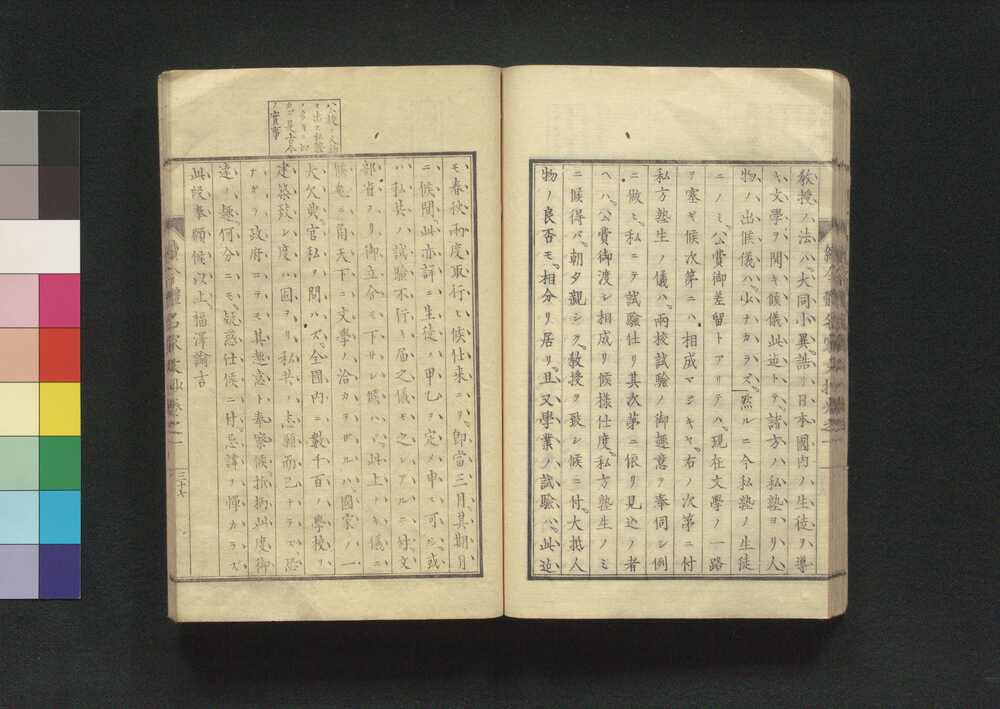 教授ノ法ハ大同小異詰リ日本國内ノ生徒ヲ導
キ文學ヲ開キ候儀此迠トテ諸方ノ私塾ヨリ人
物ノ出候儀ハ少ナカラズ然ルニ今私塾ノ生徒
ニノミ公費御差留トアリテハ現在文學ノ一路
ヲ塞ギ候次第ニハ相成マジキヤ右ノ次第ニ付
私方塾生ノ儀ハ兩校試驗ノ御趣意ヲ奉伺シ例
ニ倣ヒ私ニテ試驗仕リ其次第ニ依リ見込ノ者
ヘハ公費御渡シ相成リ候様仕度私方塾生ノミ
ニ候得バ朝夕觀シク教授ヲ致シ候ニ付大抵人
物ノ良否モ相分リ居リ且又學業ノ試驗ハ此迠
モ春秋兩度取行ヒ候仕来ニリ即當三月其期月
ニ候間此亦詳ニ生徒ノ甲乙ヲ定メ申ス可シ或
ハ私共ノ試驗不行キ届之儀モ之レアルニ付文
部省ヨリ御立合モ下サレ候ハヾ此上ナキ儀ニ
候竟ニ用天下ニ文學ノ洽カラザルハ國家ノ一
大欠典官私ヲ問ハズ全國内ニ數千百ノ學校ヲ
建築致シ度ハ固ヨリ私共ノ志願而已ナラズ恐
ナガラ政府ニテモ其趣意ト奉察候抔柄此度御
達ノ趣何分ニモ疑惑仕候ニ付忌諱ヲ憚カラズ
此段奉願候以上福澤諭吉
ノ實事
三十七